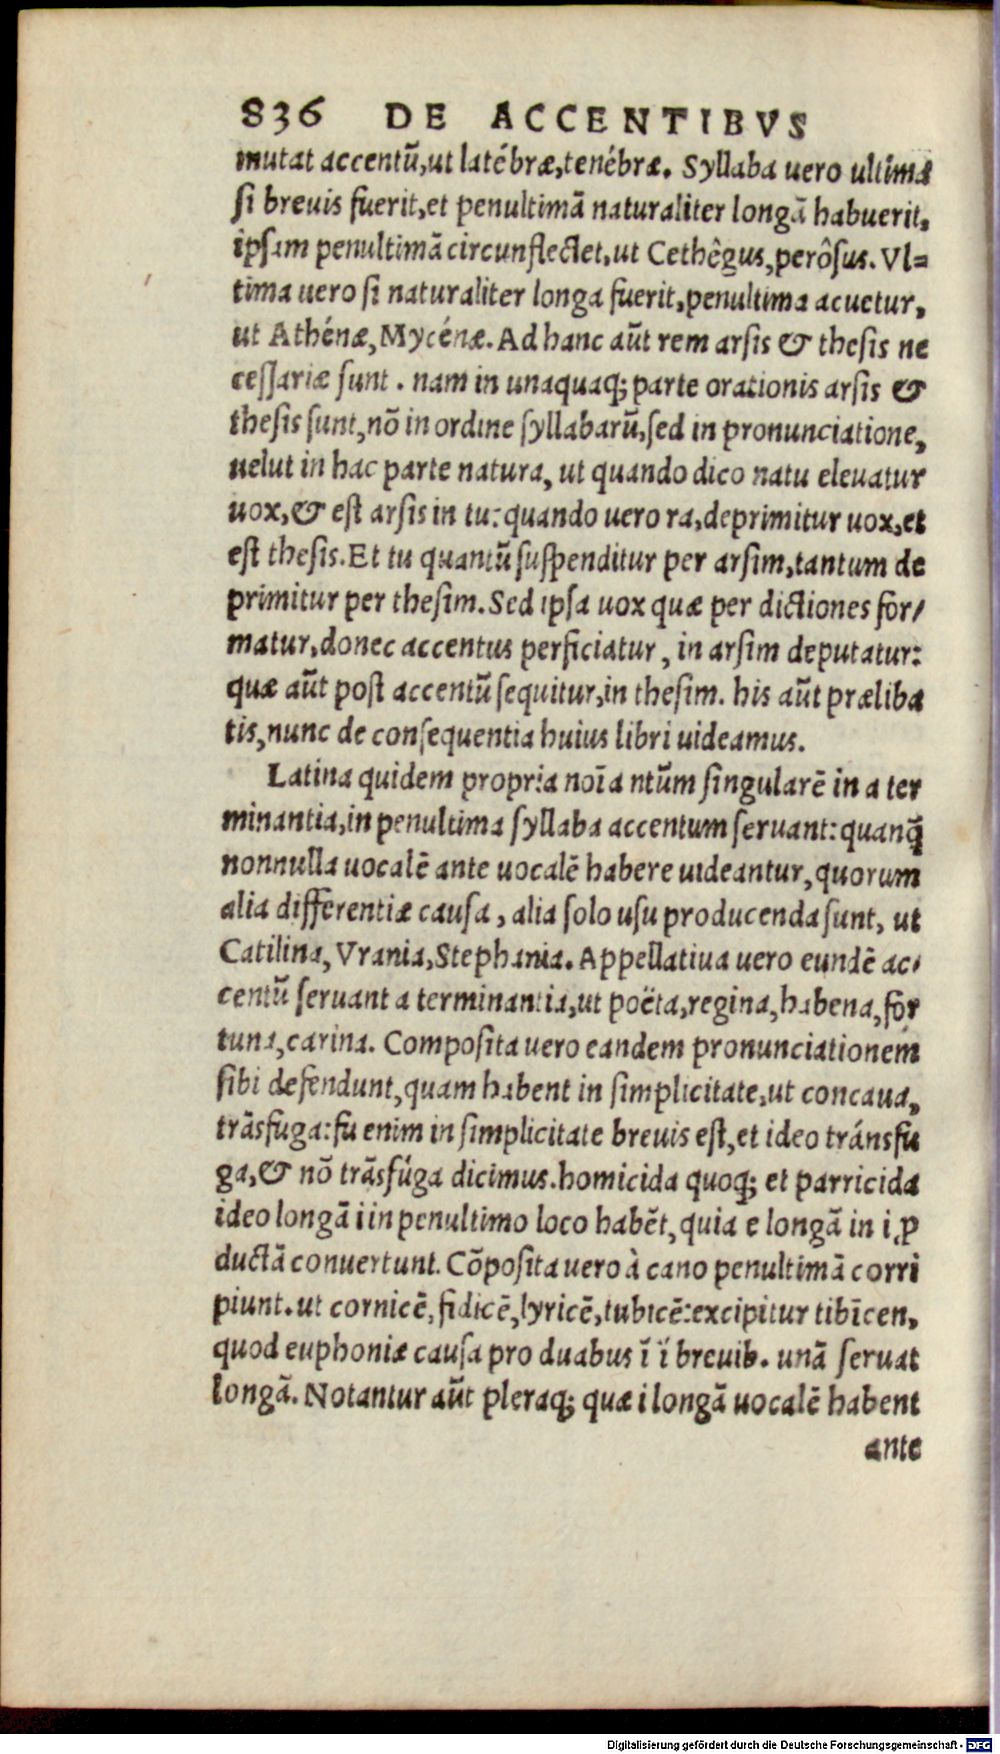 836 DE ACCENTIBVS
mutat accentũ,ut latébræ,tenébræ. Syllaba uero ultima
si breuis fuerit,et penultimã naturaliter longã habuerit,
ipsam penultimã circunflectet,ut Cethêgus,perôsus. Vl=
tima uero si naturaliter longa fuerit,penultima acuetur,
ut Athénæ,Mycénæ. Ad hanc aũt rem arsis & thesis ne
cessariæ sunt . nam in unaquaq; parte orationis arsis &
thesis sunt,nõ in ordine syllabarũ,sed in pronunciatione,
uelut in hac parte natura, ut quando dico natu eleuatur
uox,& est arsis in tu: quando uero ra,deprimitur uox,et
est thesis. Et tu quantũ suspenditur per arsim,tantum de
primitur per thesim. Sed ipsa uox quæ per dictiones for/
matur,donec accentus perficiatur , in arsim deputatur:
quæ aũt post accentũ sequitur,in thesim. his aũt præliba
tis,nunc de consequentia huius libri uideamus.
Latina quidem propria noĩa ntũm singularẽ in a ter
minantia,in penultima syllaba accentum seruant: quanq̃
nonnulla uocalẽ ante uocalẽ habere uideantur,quorum
alia differentiæ causa , alia solo usu producenda sunt, ut
Catilina, Vrania,Stephania. Appellatiua uero eundẽ ac/
centũ seruant a terminantia,ut poëta,regina,habena,for
tuna,carina. Composita uero eandem pronunciationem
sibi defendunt,quam habent in simplicitate,ut concaua,
trãsfuga: fu enim in simplicitate breuis est,et ideo tránsfu
ga,& nõ trãsfúga dicimus. homicida quoq; et parricida
ideo longã i in penultimo loco habẽt,quia e longã in i ꝓ
ductã conuertunt. Cõposita uero à cano penultimã corri
piunt. ut cornicẽ, fidicẽ,lyricẽ,tubicẽ: excipitur tibĩcen,
quod euphoniæ causa pro duabus ĭ ĭ breuib. unã seruat
longã. Notantur aũt pleraq; quæ i longã uocalẽ habent
ante
Digitalisierung gefördert durch die Deutsche Forschungsgemeinschaft - DFG